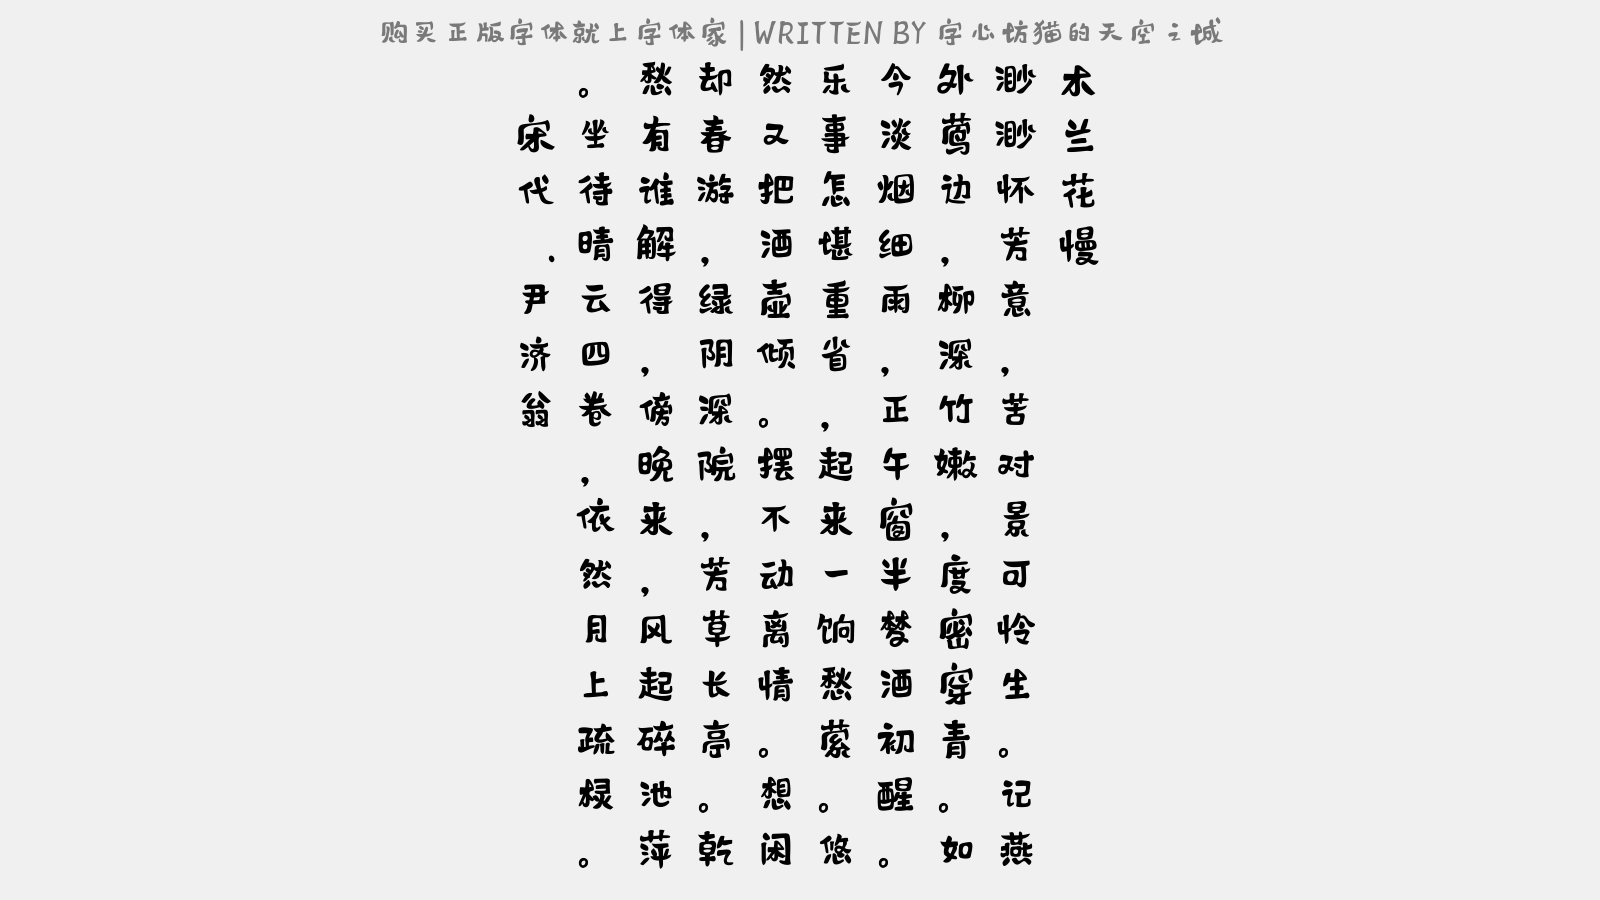 购买正版字体就上字体家|WRITTEN BY 字心坊猫的天空之城
木兰花慢
渺渺怀芳意，苦对景可怜生。记燕
外莺边，柳深竹嫩，度密穿青。如
今淡烟细雨，正午窗半梦酒初醒。
乐事怎堪重省，起来一饷愁萦。悠
然又把酒壶倾。摆不动离情。想闲
却春游，绿阴深院，芳草长亭。乾
愁有谁解得，傍晚来，风起碎池萍
。坐待晴云四卷，依然月上疏棂。
宋代.尹济翁